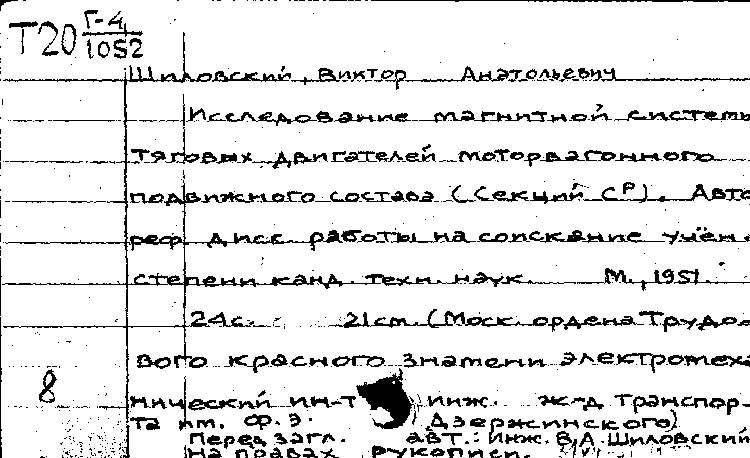 Т20 Г-4
1052
Шиловский, Виктор Анатольевич
Исследование магнитной системы
тяговых двигателей моторвагонного
подвижного состава (Секций СР). Авто
реф. дисс. работы на соискание учён
степени канд. техн. наук. М., 1951.
24с. 21см. (Моск. ордена Трудо-
вого красного знамени электромеха
8
нический ин-т инж. ж-д транспор-
та им. Ф.Э. Дзержинского)
Перед загл. авт.: инж. В.А. Шиловский
На правах рукописи.